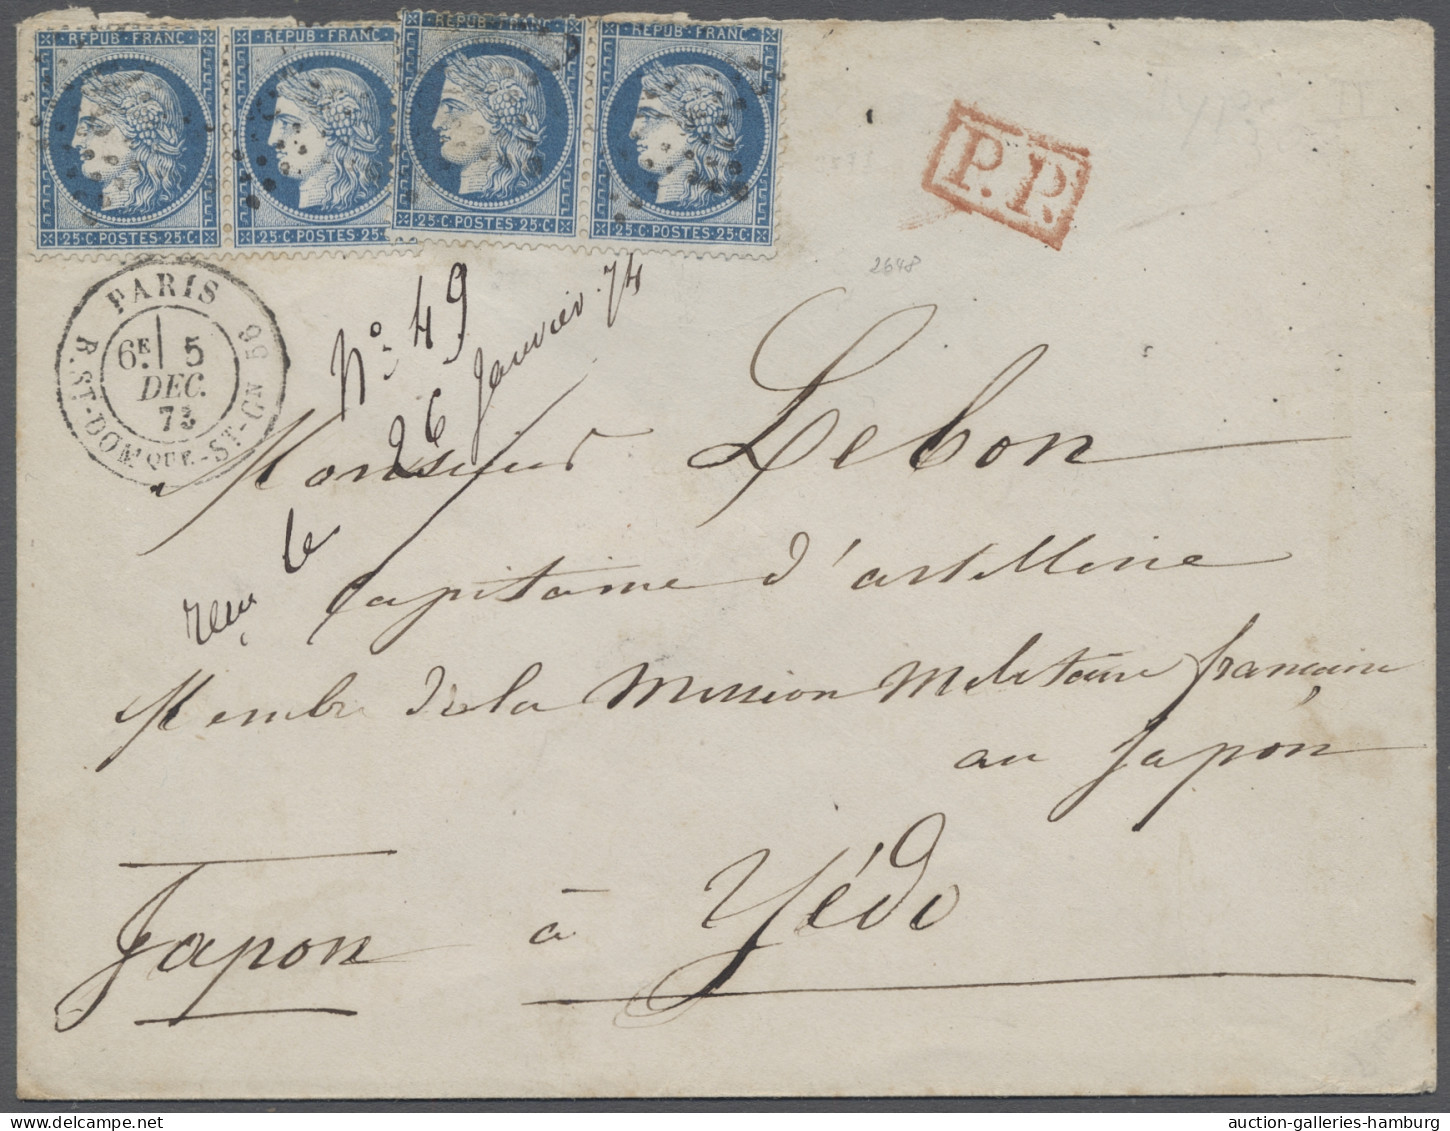 REPUB·FRANC REPUB·FRANC· REPUB·FRANC· REPUB·FRANC·
25·C·POSTES·25·C· 25·C·POSTES·25·C 25·C·POSTES·25·C· 25·C·POSTES·25·C·
P.P.
2648
PARIS
R. ST-DOM QUE.-ST-GN 56
6E 5
DEC.
73
No 49
reçue le 26 Janvier 74
Monsieur Lebon
Capitaine d'artillerie
Membre de la Mission Militaire française
au Japon
Japon à Yédo
auction-galleries-hamburg